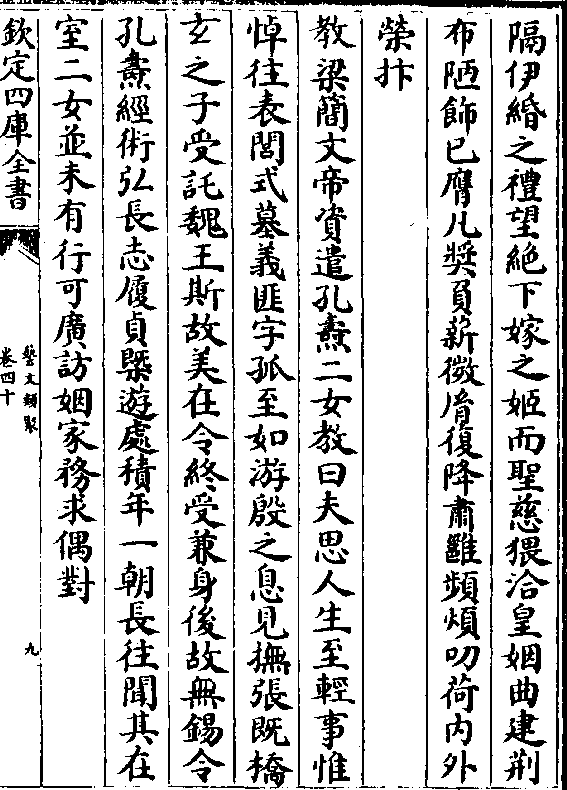 隔伊緍之禮望絶下嫁之姬而聖慈猥洽皇姻曲建荆
布陋飾已膺凡獎負薪微胤復降肅雝頻煩叨荷内外
榮抃
教梁簡文帝資遣孔燾二女教曰夫思人生至輕事惟
悼往表閭式墓義匪字孤至如游殷之息見撫張既橋
玄之子受託魏王斯故美在令終受兼身後故無錫令
孔燾經術弘長志履貞槩遊處積年一朝長往聞其在
室二女並未有行可廣訪姻家務求偶對
欽定四庫全書
藝文類聚
卷四十
九